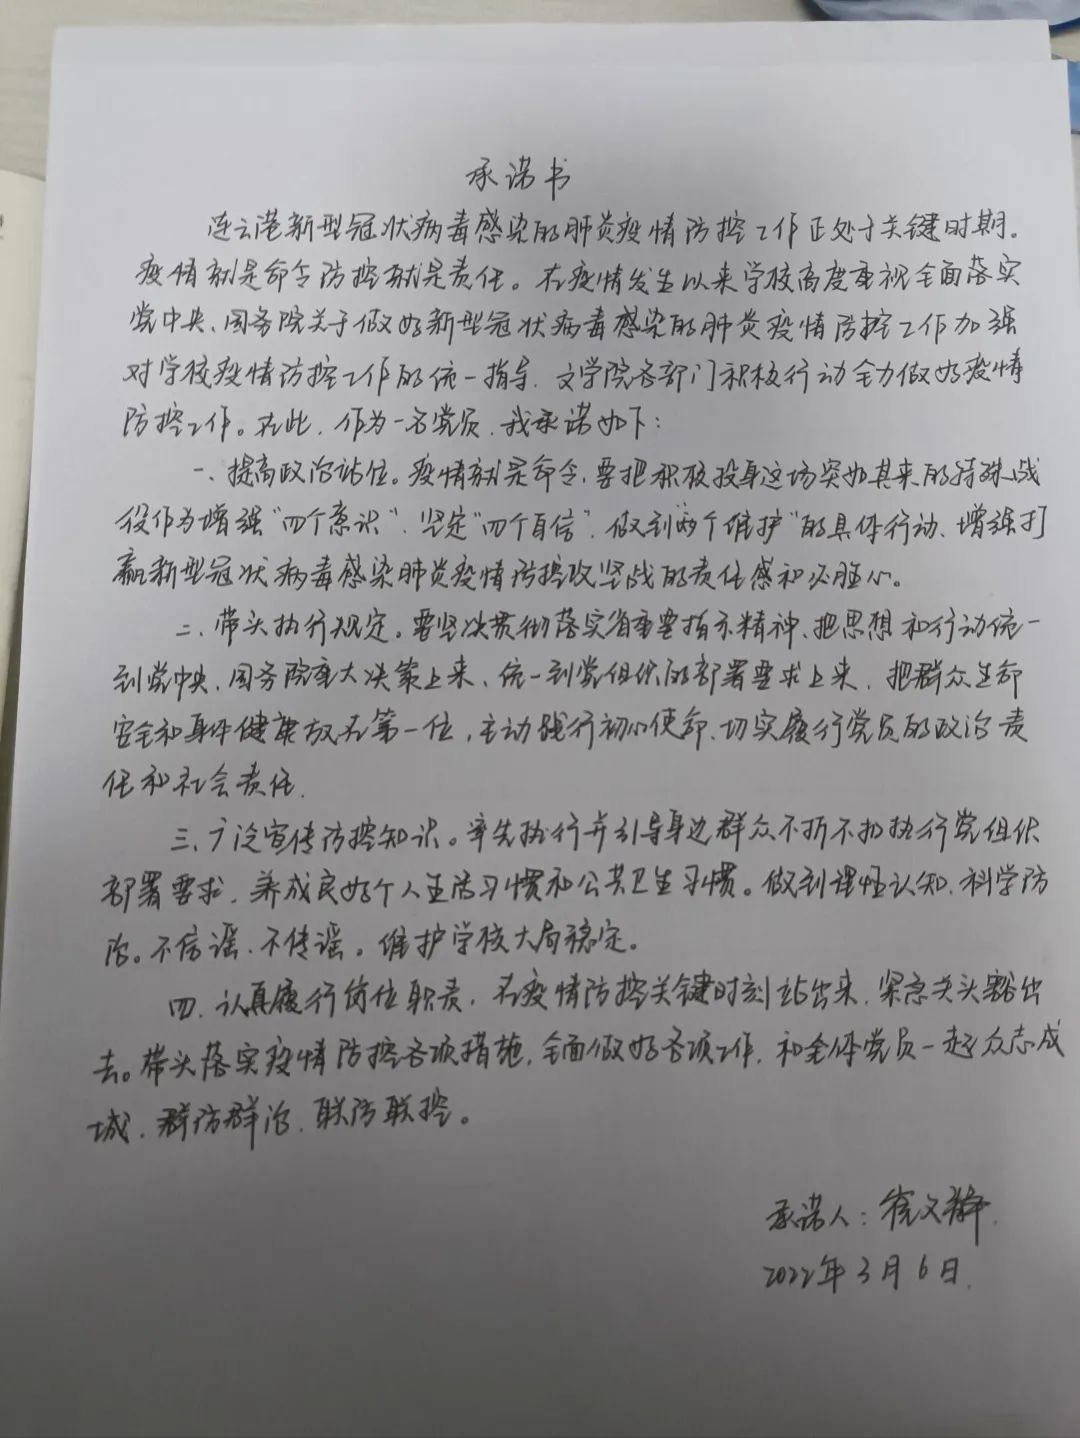 承诺书
连云港新型冠状病毒感染的肺炎疫情防控工作正处于关键时期。
疫情就是命令防控就是责任。在疫情发生以来学校高度重视全面落实
党中央、国务院关于做好新型冠状病毒感染的肺炎疫情防控工作加强
对学校疫情防控工作的统一指导、文学院各部门积极行动全力做好疫情
防控工作。在此、作为一名党员、我承诺如下:
一、提高政治站位。疫情就是命令、要把积极投身这场突如其来的特殊战
役作为增强"四个意识"、坚定"四个自信"、做到两个维护"的具体行动、增强打
赢新型冠状病毒感染肺炎疫情防控攻坚战的责任感和必胜心。
二、带头执行规定。要坚决贯彻落实省重要指示精神、把思想和行动统一
到党中央、国务院重大决策上来、统一到党组织的部署要求上来、把群众生命
安全和身体健康放在第一位,主动践行初心使命、切实履行党员的政治责
任和社会责任.
三、广泛宣传防控知识。率先执行并引导身边群众不折不扣执行党组织
部署要求、养成良好个人生活习惯和公共卫生习惯。做到理性认知、科学防
治。不信谣、不传谣。维护学校大局稳定。
四、认真履行岗位职责,在疫情防控关键时刻站出来、紧急关头豁出
去。带头落实疫情防控各项措施,全面做好各项工作,和全体党员一起众志成
城、群防群治、联防联控。
承诺人:文静
2022年3月6日.